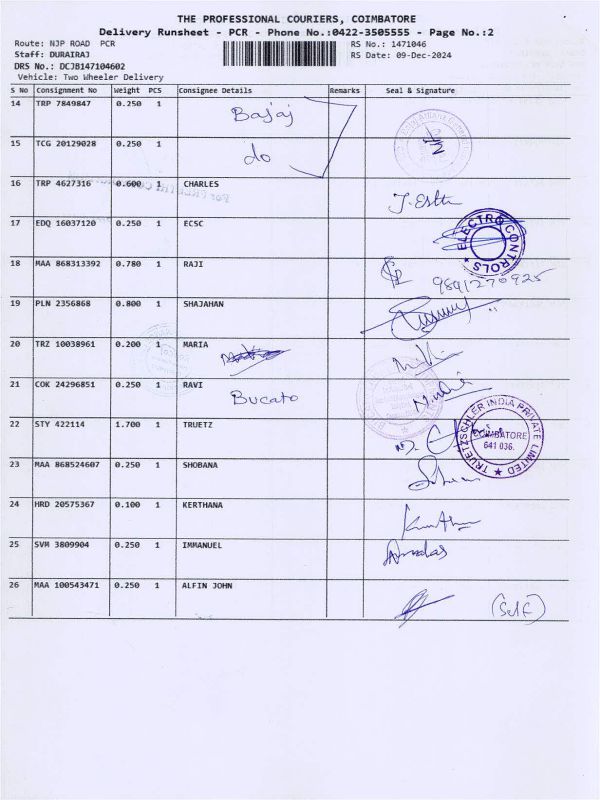 THE PROFESSIONAL COURIERS, COIMBATORE
Delivery Runsheet - PCR - Phone No.:0422-3505555 - Page No.:2
Route: NJP ROAD PCR
RS No.: 1471046
Staff: DURAIRAJ
RS Date: 09-Dec-2024
DRS No.: DCJB147104602
Vehicle: Two Wheeler Delivery
S No Consignment No Weight PCS Consignee Details Remarks Seal & Signature
14 TRP 7849847 0.250 1 Bajaj
15 TCG 20129028 0.250 1 do
16 TRP 4627316 0.600 1 CHARLES
17 EDQ 16037120 0.250 1 ECSC ELECTRO CONTROLS
18 MAA 868313392 0.780 1 RAJI 9841270925
19 PLN 2356868 0.800 1 SHAJAHAN
20 TRZ 10038961 0.200 1 MARIA
21 COK 24296851 0.250 1 RAVI
Bucato
22 STY 422114 1.700 1 TRUETZ
TRUETZSCHLER INDIA PRIVATE LIMITED
COIMBATORE
641 036.
23 MAA 868524607 0.250 1 SHOBANA
24 HRD 20575367 0.100 1 KERTHANA
25 SVM 3809904 0.250 1 IMMANUEL
26 MAA 100543471 0.250 1 ALFIN JOHN (Self)